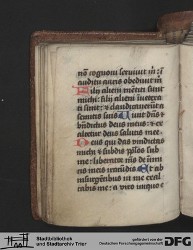 nō cognoui seruiuit m̄: ī
auditu auris obediuit m̄
Filij alieni mētiti sunt
michi: filij alieni īueterati
sunt: ⁊ claudicauerūt a
semitis suis Uiuit dn̄s ⁊
bn̄dictus deus meus: ⁊ exaltetur
deus salutis mee
Deus qui das vindictas
michi ⁊ subdis pp̄los sub
me: liberator m̄s de inimicis
meis iracūdis Et ab
insurgentibus in me exaltabis
me: a viro iniquo e
Stadtbibliothek
und Stadtarchiv Trier
gefördert von der
Deutschen Forschungsgemeinschaft
DFG